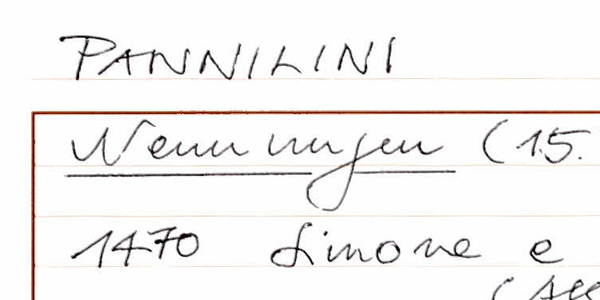 PANNILINI
Nennungen (15.
1470 Simone e